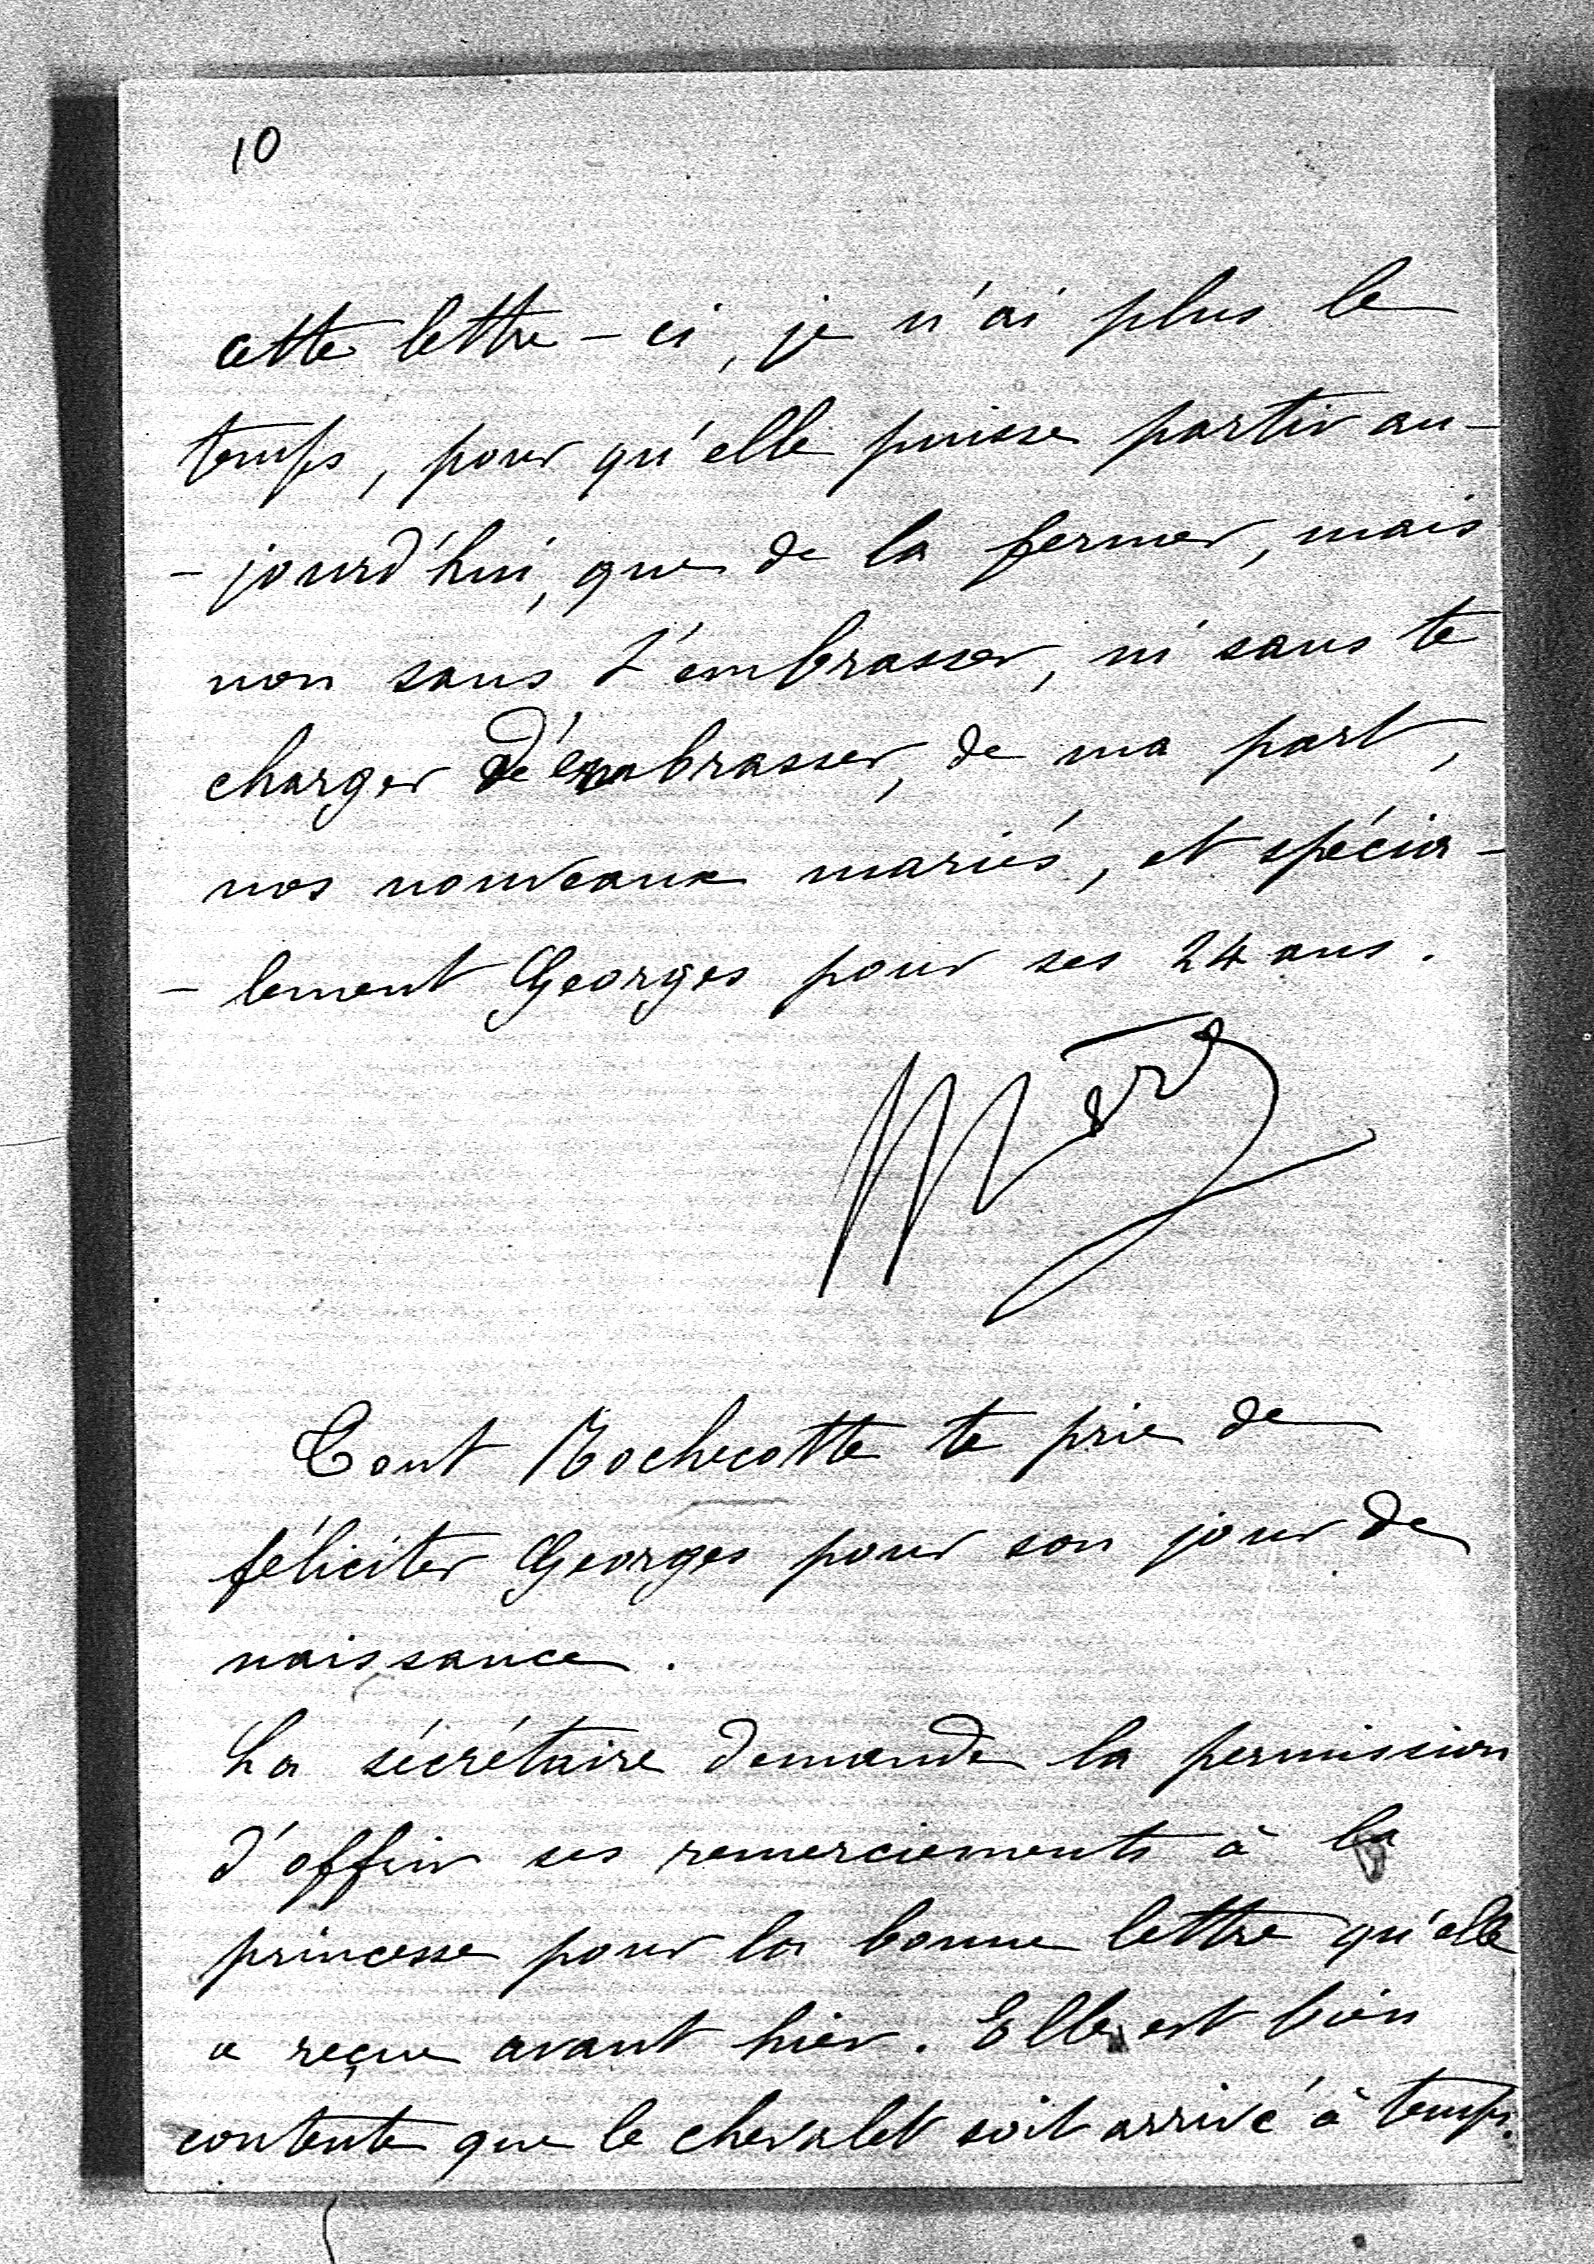 10
cette lettre-ci, je n'ai plus le
temps, pour qu'elle puisse partir au-
-jourd'hui, que de la fermer, mais
non sans t'embrasser, ni sans te
charger d'embrasser, de ma part,
nos nouveaux mariés, et spécia-
-lement Georges pour ses 24 ans.
Tout Rochecotte te prie de
féliciter Georges pour son jour de
naissance.
La sécrétaire demande la permission
d'offrir ses remerciements à la
princesse pour la bonne lettre qu'elle
a reçue avant hier. Elle est bien
contente que le chevalet soit arrivé à temps.